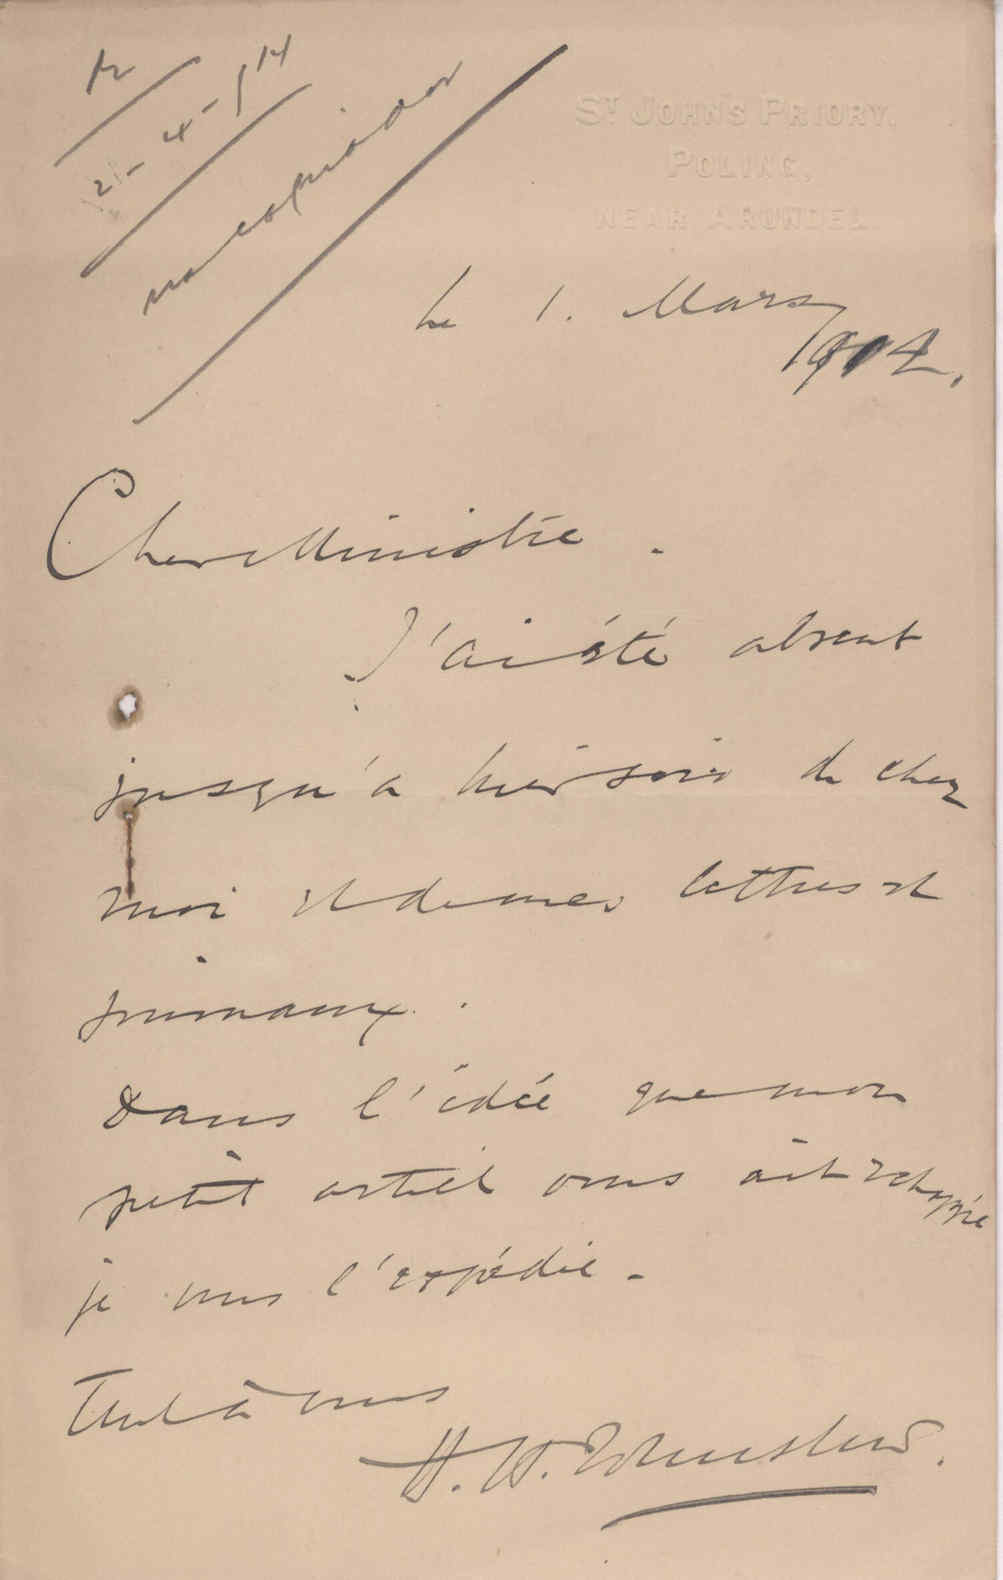 R
21-4-914
não copiador
ST JOHN'S PRIORY,
POLING,
NEAR ARUNDEL.
Le 1. Mars
Cher Ministre.
J'ai été absent
jusqu'à hier soir de chez
moi et de mes lettres et
journaux.
Dans l'idée que mon
petit articl vous ait échappé
je vous l'expédie.
Tout à vous
H. H. Johnston.